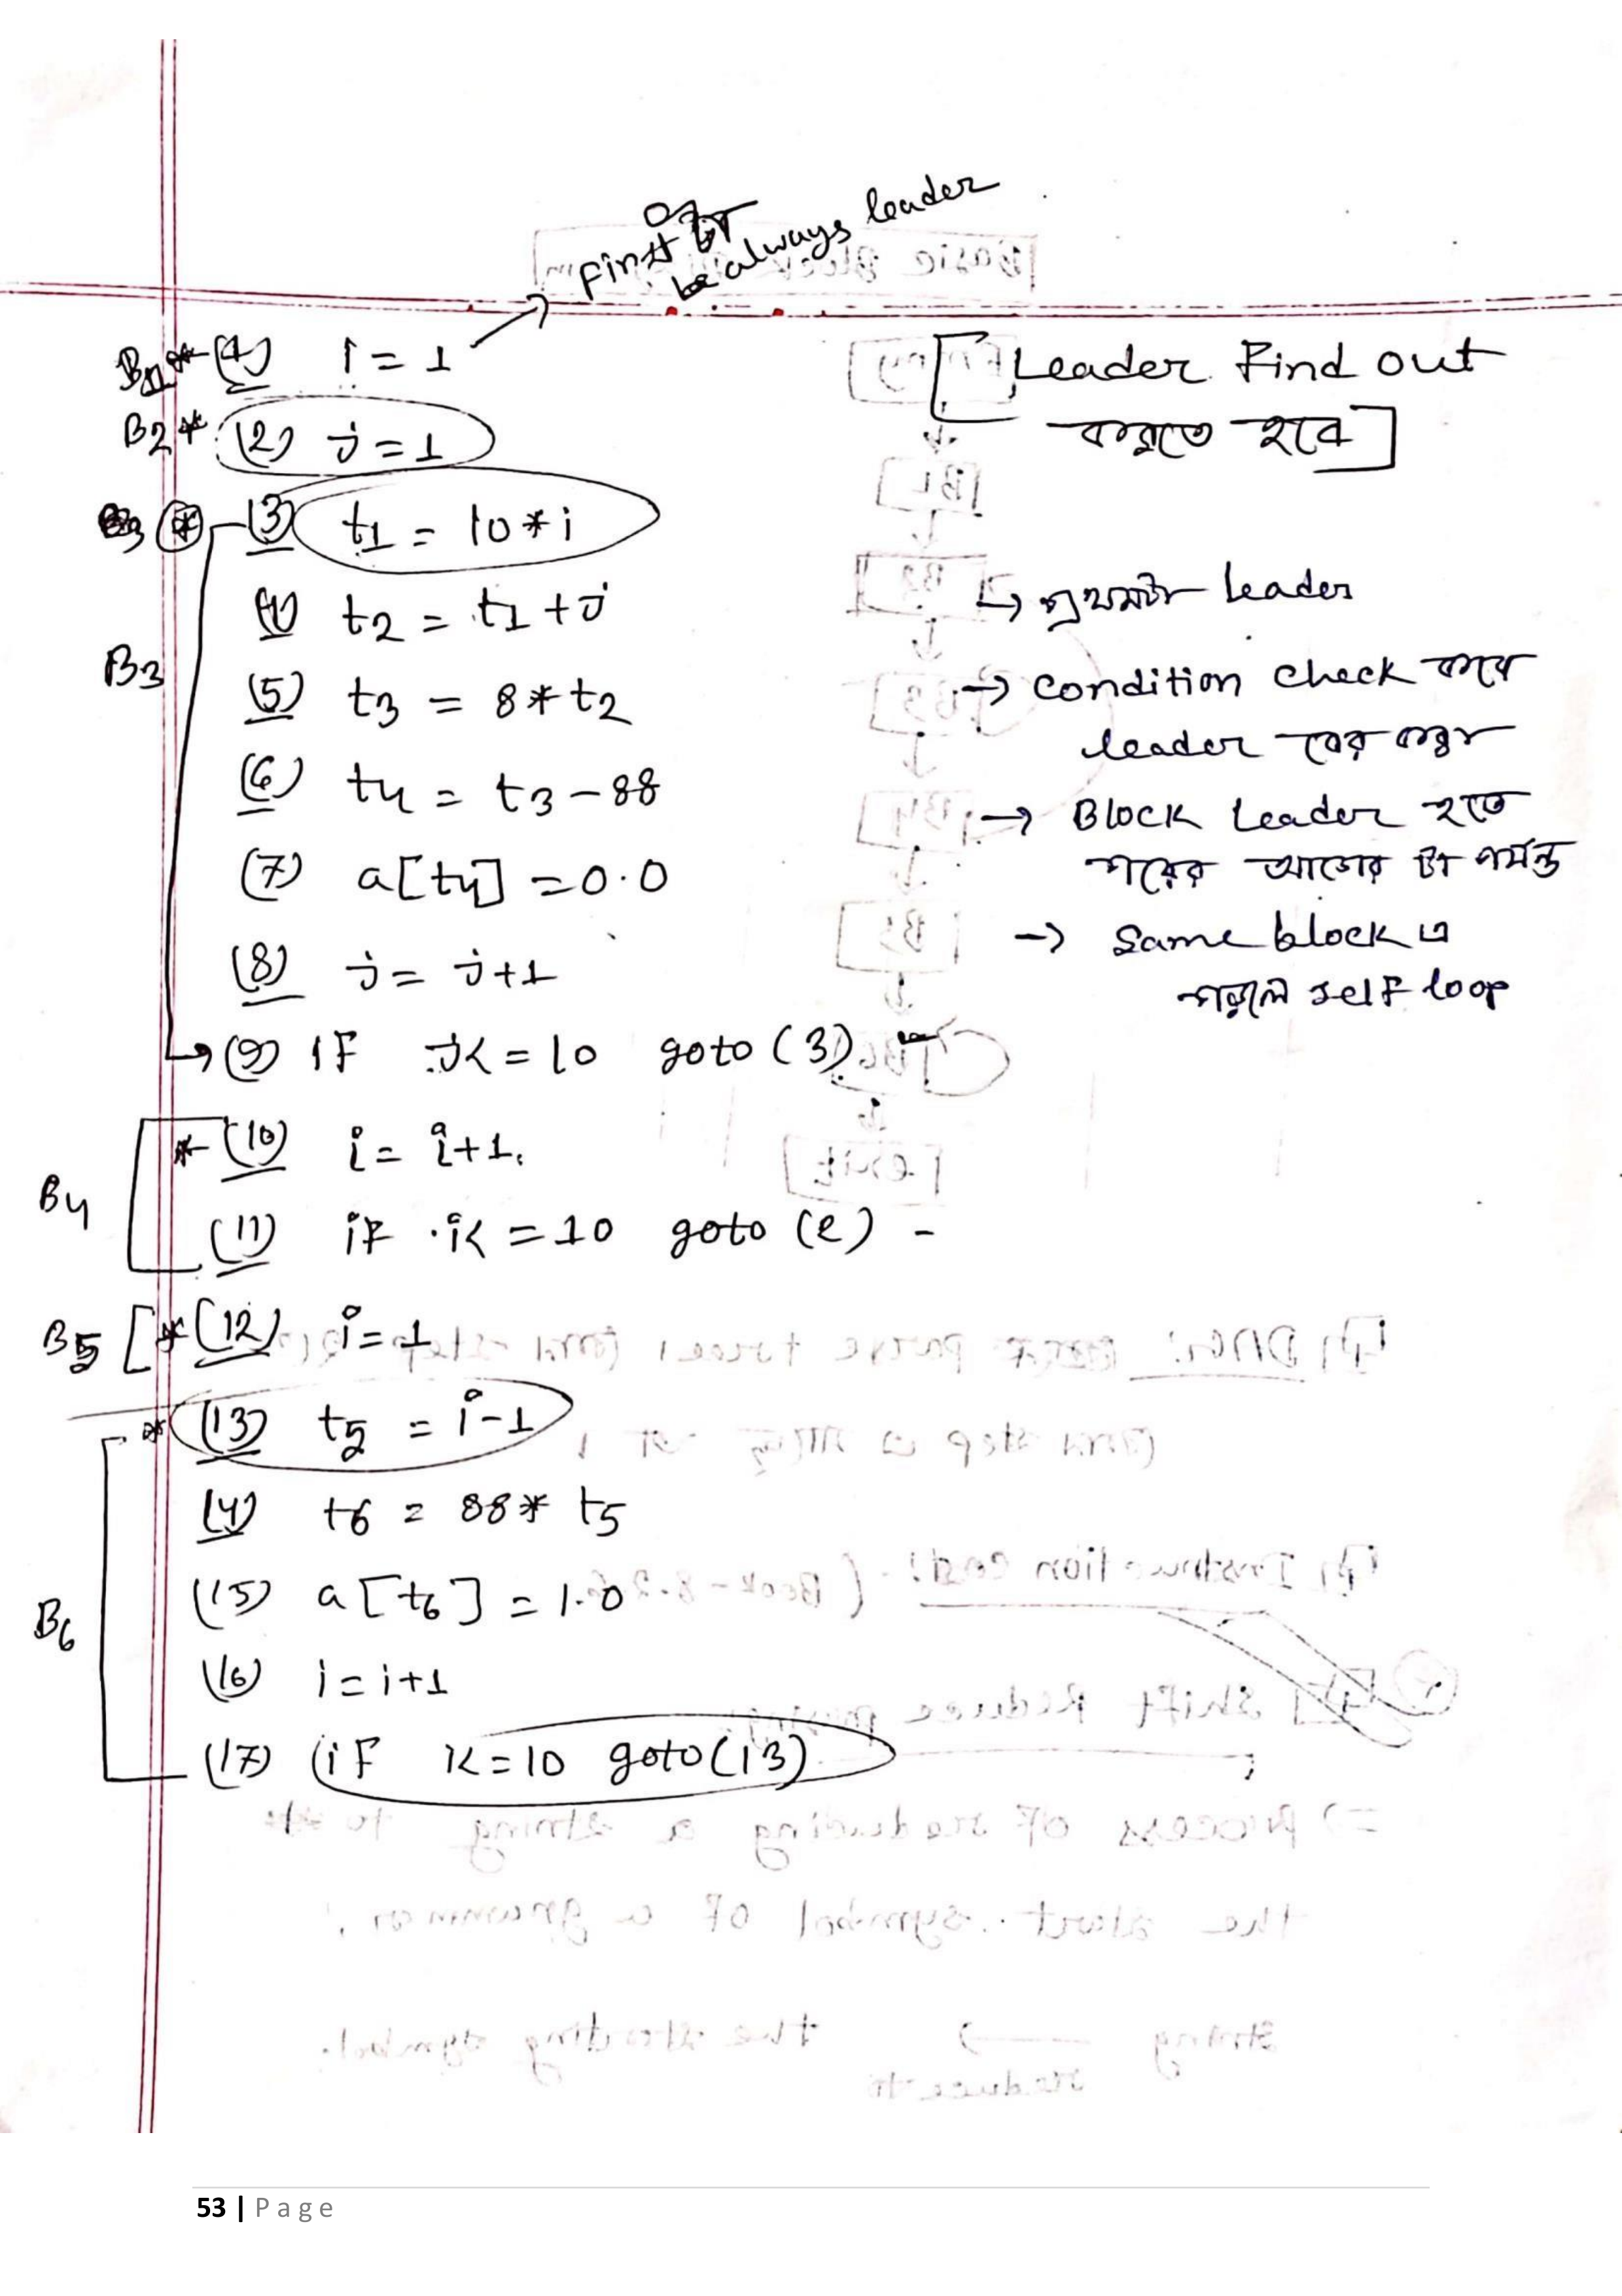 First টা
be always leader
B1 * (1) i = 1
B2 * (2) j = 1
B3 * (3) t1 = 10 * i
(4) t2 = t1 + j
B3
(5) t3 = 8 * t2
(6) t4 = t3 - 88
(7) a[t4] = 0.0
(8) j = j+1
→ (9) IF j<=10 goto (3)
* (10) i = i+1.
B4
(11) if i<=10 goto (2) -
B5 [ * (12) i = 1
* (13) t5 = i-1
(14) t6 = 88 * t5
(15) a[t6] = 1.0
B6
(16) i = i+1
(17) (iF i<=10 goto (13)
[Leader Find out
করতে হবে]
→ প্রথমটা leader
→ condition check করে
leader বের করব
→ Block Leader হতে
পরের আগের টা পর্যন্ত
→ Same block এ
পড়লে self loop
53 | Page